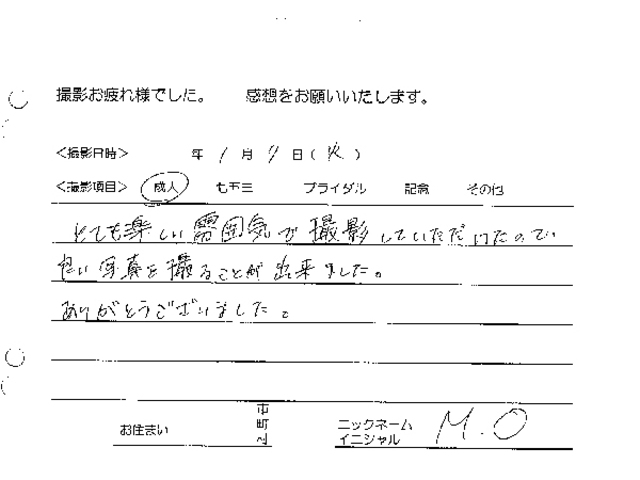 撮影お疲れ様でした。 感想をお願いいたします。
<撮影日時> 年 1 月 9 日 ( 火 )
<撮影項目> 成人 七五三 ブライダル 記念 その他
とても楽しい雰囲気で撮影していただけたので
良い写真を撮ることが出来ました。
ありがとうございました。
お住まい 市町村 ニックネーム イニシャル M.O